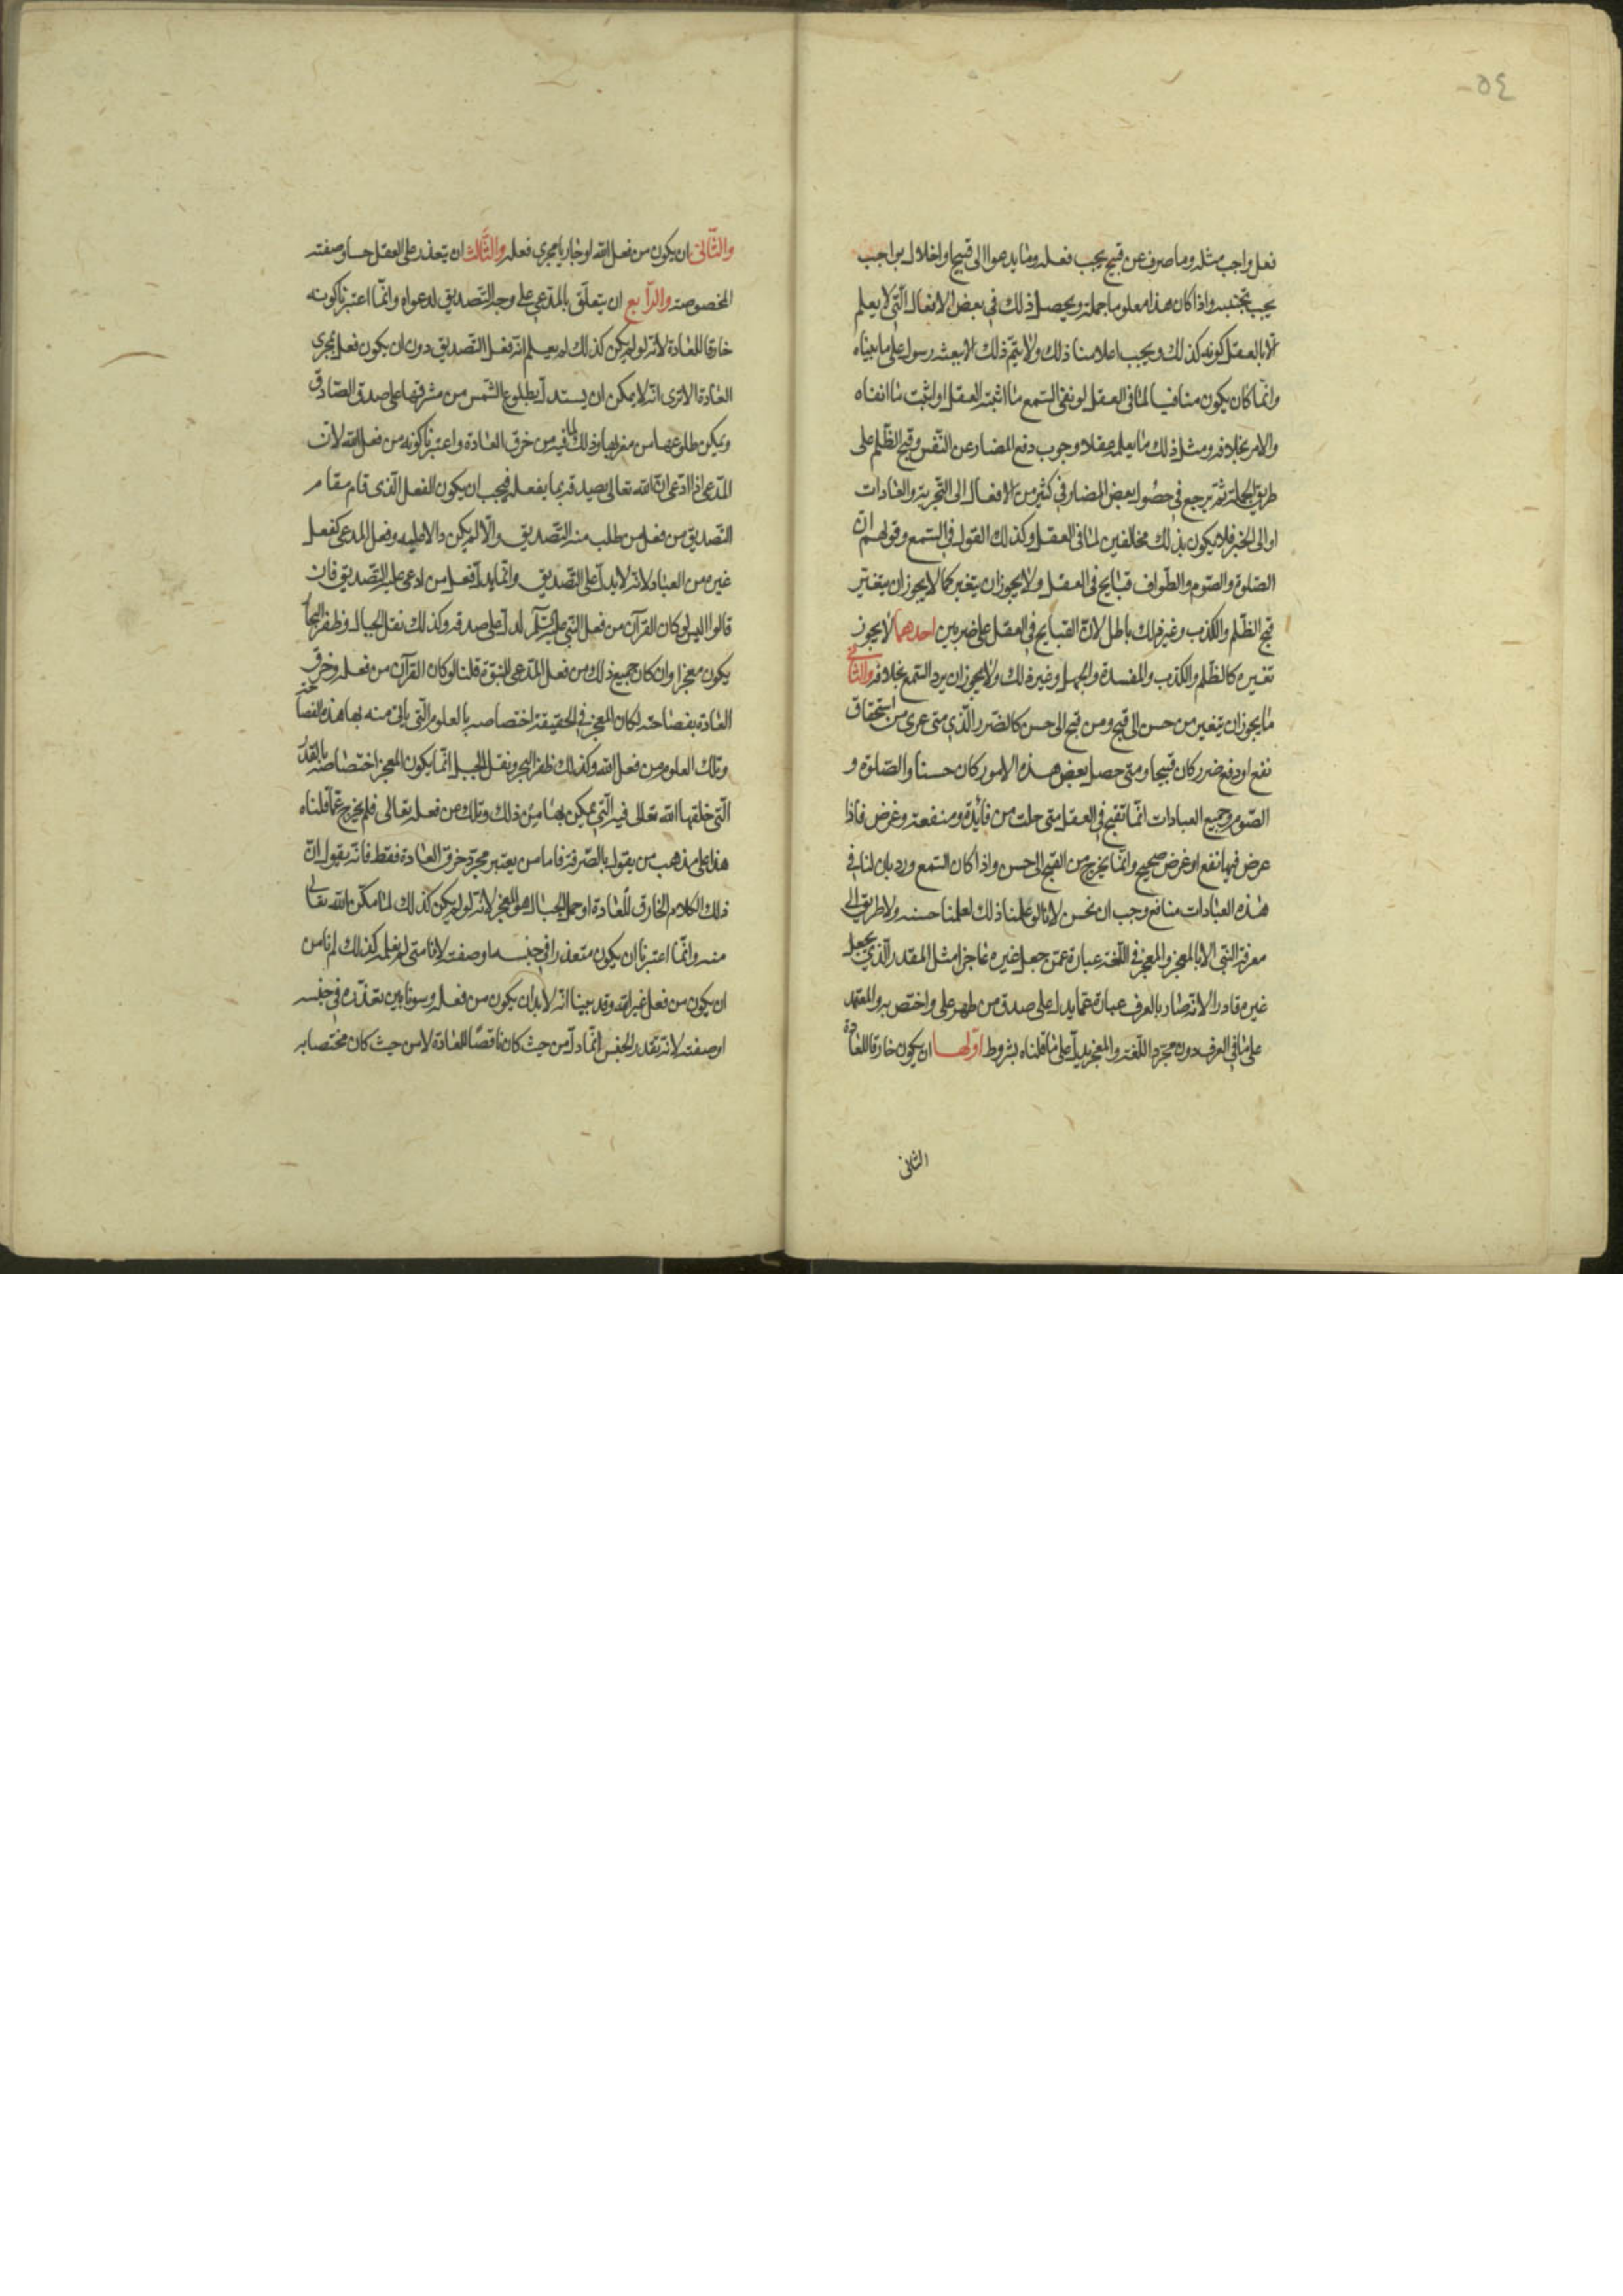 ٥٤
فعل واجب مثله وما صرف عن قبيح يجب فعله وما يدعوا الى قبيح او اخلال بواجب
يجب تجنبه واذا كان هذا معلوما جملة ويحصل ذلك في بعض الافعال التي لا يعلم
الا بالعقل كونه كذلك ويجب اعلامنا ذلك ولا يتم ذلك الا ببعثه رسول على ما بيناه
وانما كان يكون منافيا لما في العقل لو نفى السمع ما اثبته العقل او اثبت ما انفاه
والامر بخلافه ومثل ذلك ما يعلمه عقلا وجوب دفع المضار عن النفس وقبح الظلم على
طريق الجملة ثم يرجع في حصول بعض المضار في كثير من الافعال الى التجربة والعادات
او الى الخبر فلا يكون بذلك مخالفين لما في العقل وكذلك القول في السمع وقولهم ان
الصلوة والصوم والطواف قبايح في العقل ولا يجوز ان يتغير كما لا يجوز ان يتغير
قبح الظلم والكذب وغير ذلك باطل لان القبايح في العقل على ضربين احدهما لا يجوز
تغيره كالظلم والكذب والمفسدة والجهل وغير ذلك ولا يجوز ان يرد السمع بخلافه والثاني
ما يجوز ان يتغير من حسن الى قبح ومن قبح الى حسن كالضرر الذي متى عرى من استحقاق
نفع او دفع ضرر كان قبيحا ومتى حصل بعض هذه الامور كان حسنا والصلوة و
الصوم وجميع العبادات انما تقبح في العقل متى خلت من فائدة ومنفعة وغرض فاذا
عرض فيها نفع او غرض صحيح وانما يخرج من القبح الى حسن واذا كان السمع ورد بان لنا في
هذه العبادات منافع وجب ان تحسن لانا لو علمنا ذلك لعلمنا حسنه ولا طريق الى
معرفة النبي الا بالمعجز والمعجز في اللغة عبارة عمن جعل غيره عاجزا مثل المقدر الذي يجعل
غيره قادرا الا انه صار بالعرف عبارة عما يدل على صدق من ظهر على واختص به والمعتمد
على ما في العرف دون مجرد اللغة والمعجز يدل على ما قلناه بشروط اولها ان يكون خارقا للعادة
الثاني
والثاني ان يكون من فعل الله او جاريا مجرى فعله والثالث ان يتعذر على العقل جنسا وصفته
المخصوصة والرابع ان يتعلق بالمدعي على وجه التصديق لدعواه وانما اعتبرنا كونه
خارقا للعادة لانه لو لم يكن كذلك لم يعلم انه فعل التصديق دون ان يكون فعل بمجرى
العادة الا ترى انه لا يمكن ان يستدل بطلوع الشمس من مشرقها على صدق الصادق
ويمكن طلوعها من مغربها وذلك لما فيه من خرق العادة واعتبرنا كونه من فعل الله لان
المدعى اذا ادعى ان الله تعالى يصدقه بما يفعله فيجب ان يكون الفعل الذى قام مقام
التصديق من فعل من طلب منه التصديق والا لم يكن دالا عليه وفعل المدعى كفعل
غيره من العباد لانه لا يدل على التصديق وانما يدل فعل من ادعى عليه التصديق فان
قالوا اليس لو كان القرآن من فعل النبي عليه السلام لدل على صدقه وكذلك نقل الجبال وطفر البحار
يكون معجزا وان كان جميع ذلك من فعل المدعى للنبوة قلنا لو كان القرآن من فعله وخرق
العادة بفصاحته لكان المعجز في الحقيقة اختصاصه بالعلوم التي يأتى منه بها هذه الفصاحة
وتلك العلوم من فعل الله وكذلك طفر البحر ونقل الجبل انما يكون المعجز اختصاصه بالقدر
التي خلقها الله تعالى فيه التي يمكن بها من ذلك وتلك من فعله تعالى فلم يخرج عما قلناه
هذا على مذهب من يقول بالصرفة فاما من يعتبر مجرد خرق العادة فقط فانه يقول ان
ذلك الكلام الخارق للعادة او حمل الجبال هو المعجز لانه لو لم يكن كذلك لما مكن الله تعالى
منه وانما اعتبرنا ان يكون متعذرا في جنسه او صفته لانا متى لم نعلمه كذلك لم نامن
ان يكون من فعل غير الله وقد بينا انه لا بد ان يكون من فعله وسوينا بين تعذره في جنسه
او صفته لانه تعذر الجنس انما دل من حيث كان ناقضا للعادة لا من حيث كان مختصا به